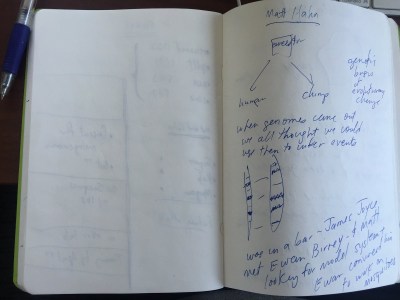 Matt Hahn
ancestor
human
chimp
genetic
basis
of
evolutionary
change
when genomes came out
we all thought we would
use them to infer events
was in a bar - James Joyce,
met Ewan Birney, & Matt
looking for model system
Ewan convinced him
to work on
mosquitoes